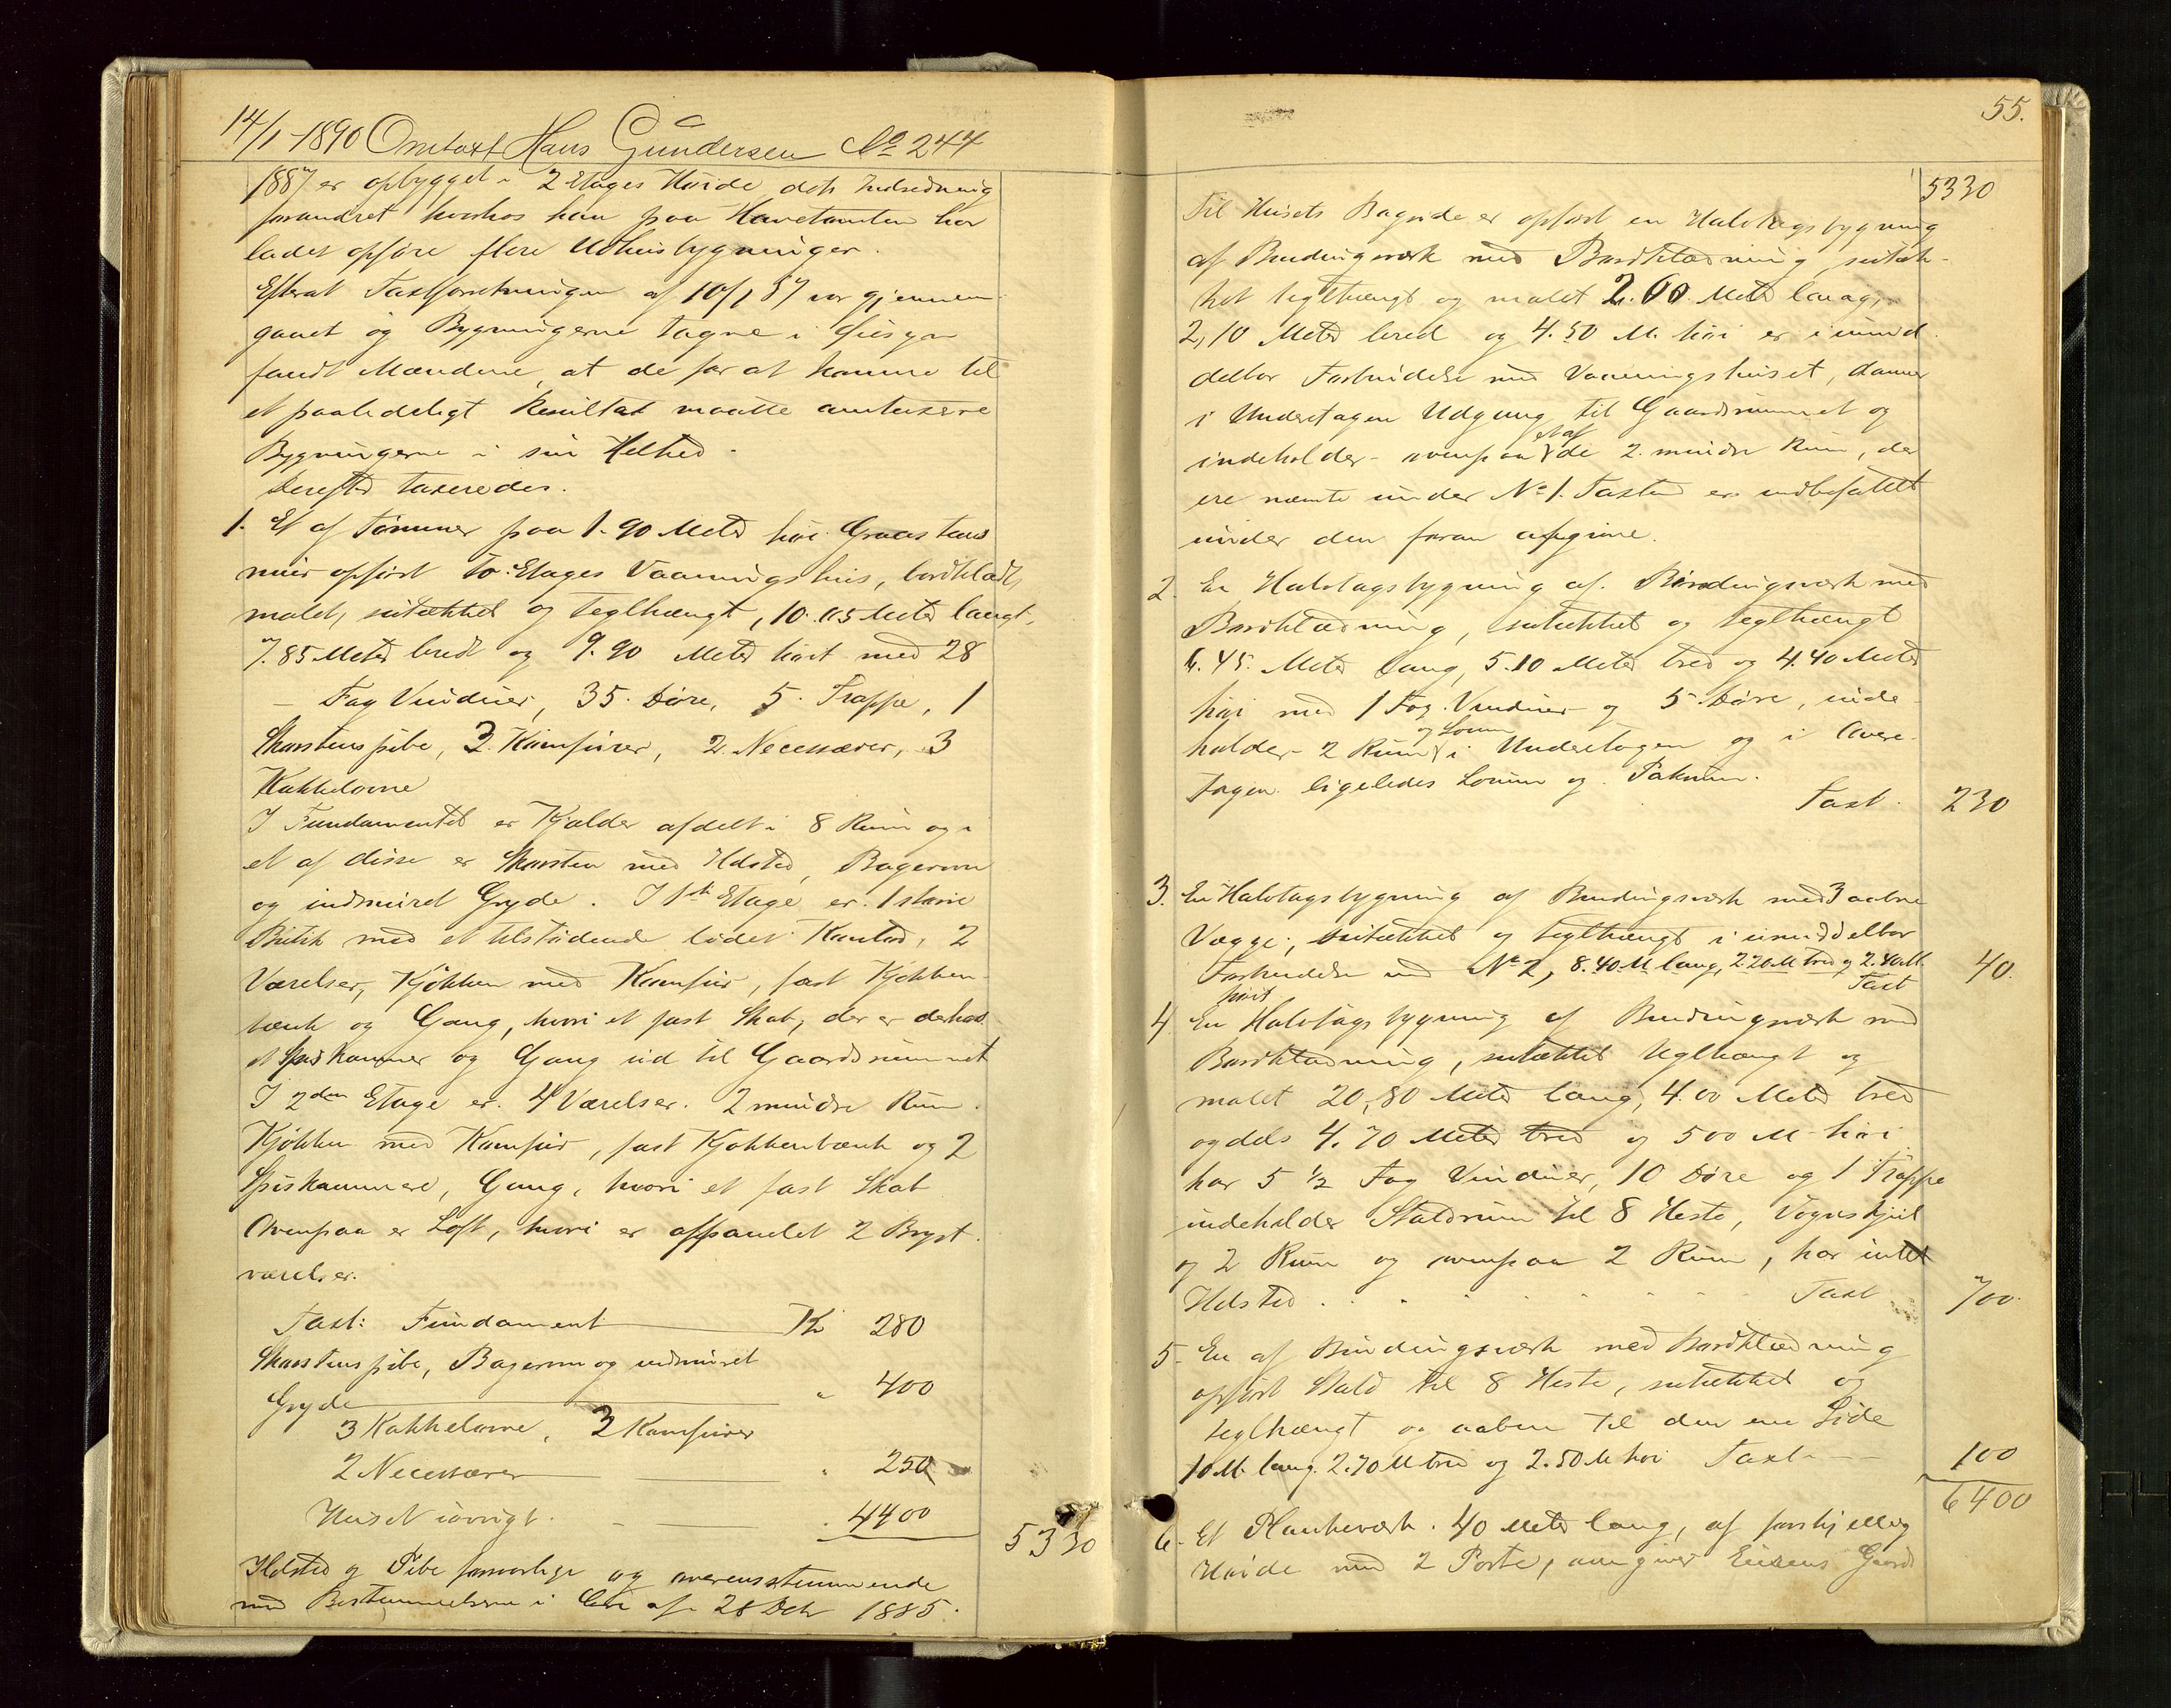 14/1-1890 Omtaxt Hans Gundersen No 244
1887 er opbygget i 2 Etages Høide, dets Indredning
forandret hvorhos han paa Havetomten har
ladet opføre flere Udhusbygninger.
Efterat Taxtforretningen af 10/1 87 var gjennem
gaaet og Bygningerne tagne i Øiesyn
fandt Mændene, at de for at komme til
et paalideligt Resultat maatte omtaxere
Bygningerne i sin Helhed.
Derefter taxeredes.
1. Et af Tømmer paa 1.90 Meter høi Graastens
muur opført to Etages Vaaningshus, bordklædt,
malet, sutækket og teglhængt, 10.05 Meter langt,
7.85 Meter bredt og 9.90 Meter høit med 28
Fag Vinduer, 35 Døre, 5 Trappe, 1
Skorstenspibe, 2 Komfurer, 2 Necessærer, 3
Kakkelovne
I Fundamentet er Kjælder afdelt i 8 Rum og i
et af disse er Skorsten med Ildsted, Bagerovn
og indmuret Gryde. I 1ste Etage er 1 større
Butik med et tilstødende lidet Kontor, 2
Værelser, Kjøkken med Komfur, fast Kjøkken-
bænk og Gang, hvori et fast Skab, der er derhos
et Spiskammer og Gang ud til Gaardsrummet
I 2den Etage er 4 Værelser. 2 mindre Rum.
Kjøkken med Komfur, fast Kjøkkenbænk og 2
Spiskammere, Gang, hvori et fast Skab
Ovenpaa er Loft, hvori er afpanelet 2 Kvist
værelser.
Taxt: Fundament Kr 280
Skorstenspibe, Bagerovn og indmuret
Gryde " 400
3 Kakkelovne, 2 Komfurer
2 Necessærer " 250
Huset iøvrigt. " 4400
5330
Ildsted og Pibe forsvarlige og overensstemmende
med Bestemmelserne i Lov af 28 Dcbr 1885.
55.
5330
Til Husets Bagside er opført en Halvtagsbygning
af Bindingsværk med Bordklædning, sutæk-
ket teglhængt og malet 2.00 Meter lang,
2,10 Meter bred og 4.50 M. høi er i umid
delbar Forbindelse med Vaaningshuset, danner
i Underetagen Udgang til Gaardsrummet og
et af
indeholder ovenpaa de 2 mindre Rum, der
ere nævnte under No 1. Taxten er indbefattet
under den foran afgivne.
2. En Halvtagsbygning af Bindingsværk med
Bordklædning, sutækket og teglhængt
6.45 Meter lang, 5.10 Meter bred og 4.40 Meter
høi med 1 Fag Vinduer og 5 Døre, inde
og Lovum
holder 2 Rum i Underetagen og i Overe-
tagen ligeledes Lovum og Pakrum.
Taxt. 230
3. En Halvtagsbygning af Bindingsværk med 3 aabne
Vægge, sutækket og teglhængt i umiddelbar
Forbindelse med No 2, 8.40 M lang, 2.20 M bred og 2.40 M.
høit Taxt 40.
4. En Halvtagsbygning af Bindingsværk med
Bordklædning, sutækket teglhængt og
malet 20,80 Meter lang, 4.00 Meter bred
og dels 4.70 Meter bred og 500 M høi
har 5 1/2 Fag Vinduer, 10 Døre og 1 Trappe
indeholder Staldrum til 8 Heste, Vognskjul
og 2 Rum og ovenpaa 2 Rum, har intet
Ildsted . . . . . . . Taxt 700.
5. En af Bindingsværk med Bordklædning
opført Stald til 8 Heste, sutækket og
teglhængt og aaben til den ene Side
10 M. lang. 2.70 M bred og 2.50 M høi Taxt 100
6400
6. Et Plankeværk. 40 Meter lang, af forskjellig
Høide med 2 Porte, omgiver Eierens Gaards